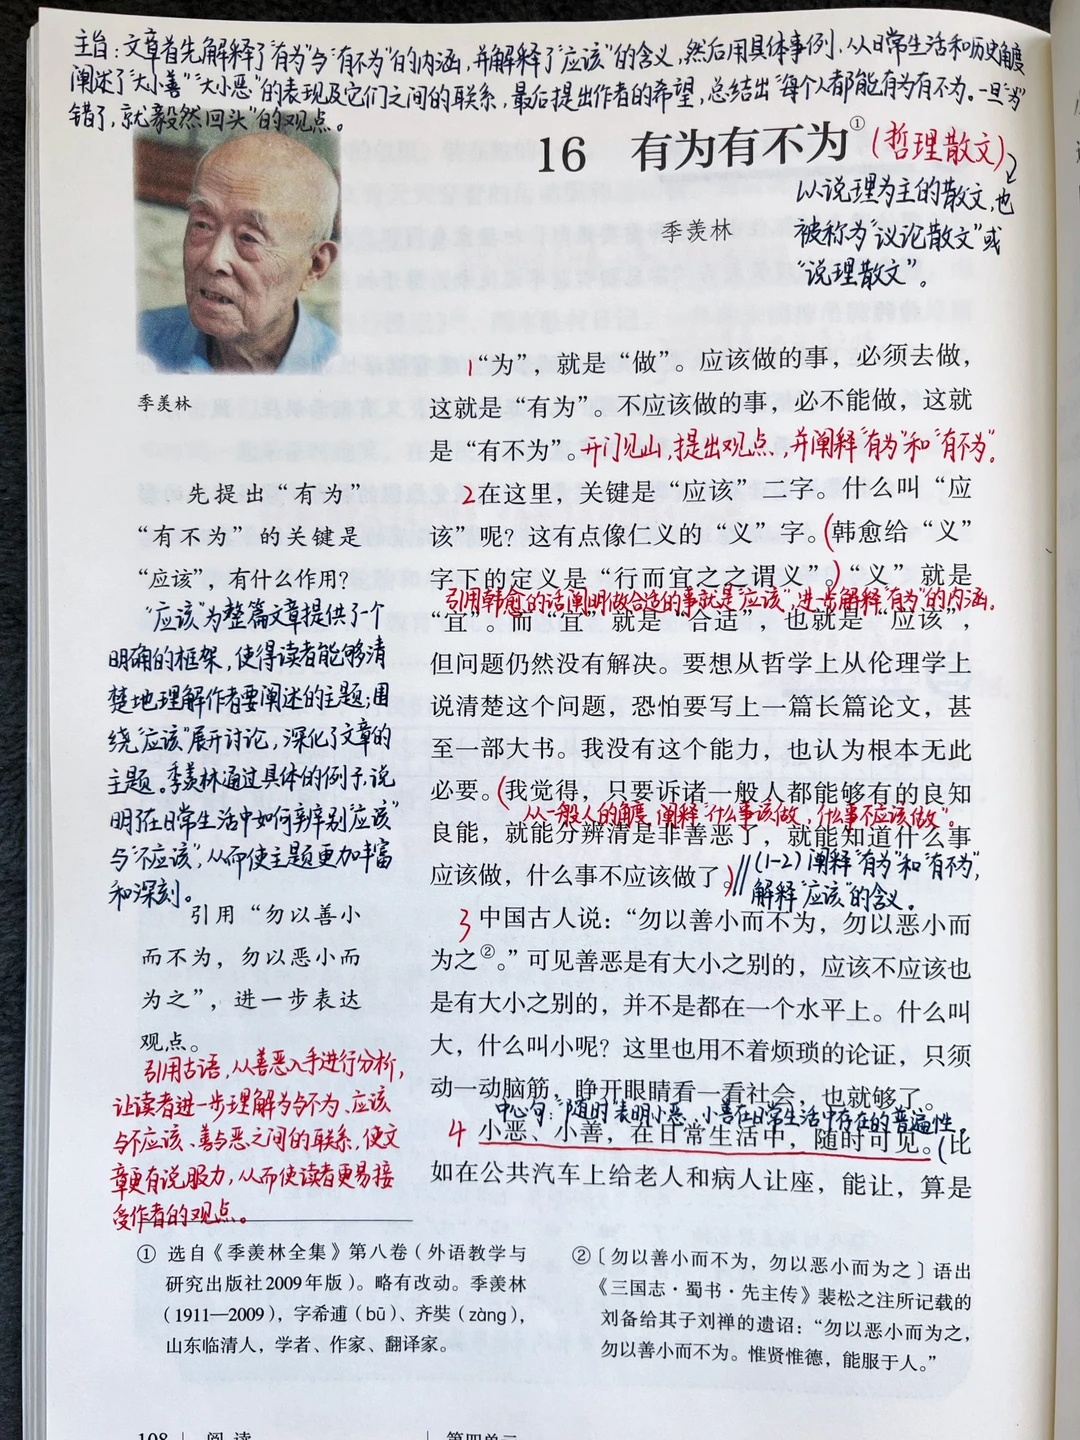 主旨：文章首先解释了“有为”与“有不为”的内涵，并解释了“应该”的含义，然后用具体事例，从日常生活和历史角度
阐述了“大小善”“大小恶”的表现及它们之间的联系，最后提出作者的希望，总结出“每个人都能有为有不为。一旦‘为’
错了，就毅然回头”的观点。
16 有为有不为①
(哲理散文)
以说理为主的散文，也
被称为“议论散文”或
“说理散文”。
季羡林
季羡林
1“为”，就是“做”。应该做的事，必须去做，
这就是“有为”。不应该做的事，必不能做，这就
是“有不为”。
开门见山，提出观点，并阐释“有为”和“有不为”。
先提出“有为”
“有不为”的关键是
“应该”，有什么作用？
“应该”为整篇文章提供了个
明确的框架，使得读者能够清
楚地理解作者要阐述的主题；围
绕“应该”展开讨论，深化了文章的
主题。季羡林通过具体的例子，说
明了在日常生活中如何辨别“应该”
与“不应该”，从而使主题更加丰富
和深刻。
2在这里，关键是“应该”二字。什么叫“应
该”呢？这有点像仁义的“义”字。(韩愈给“义”
字下的定义是“行而宜之之谓义”。)“义”就是
引用韩愈的话阐明做合适的事就是“应该”，进一步解释“有为”的内涵。
“宜”。而“宜”就是“合适”，也就是“应该”，
但问题仍然没有解决。要想从哲学上从伦理学上
说清楚这个问题，恐怕要写上一篇长篇论文，甚
至一部大书。我没有这个能力，也认为根本无此
必要。(我觉得，只要诉诸一般人都能够有的良知
从一般人的角度，阐释“什么事该做，什么事不应该做”。
良能，就能分辨清是非善恶了，就能知道什么事
应该做，什么事不应该做了。)
//(1-2)阐释“有为”和“有不为”，
解释“应该”的含义。
引用“勿以善小
而不为，勿以恶小而
为之”，进一步表达
观点。
引用古语，从善恶入手进行分析，
让读者进一步理解为与不为、应该
与不应该、善与恶之间的联系，使文
章更有说服力，从而使读者更易接
受作者的观点。
3中国古人说：“勿以善小而不为，勿以恶小而
为之②。”可见善恶是有大小之别的，应该不应该也
是有大小之别的，并不是都在一个水平上。什么叫
大，什么叫小呢？这里也用不着烦琐的论证，只须
动一动脑筋，睁开眼睛看一看社会，也就够了。
中心句：“随时”表明小恶、小善在日常生活中存在的普遍性。
4小恶、小善，在日常生活中，随时可见。(比
如在公共汽车上给老人和病人让座，能让，算是
① 选自《季羡林全集》第八卷（外语教学与
研究出版社2009年版）。略有改动。季羡林
（1911—2009），字希逋（bū）、齐奘（zàng），
山东临清人，学者、作家、翻译家。
②〔勿以善小而不为，勿以恶小而为之〕语出
《三国志·蜀书·先主传》裴松之注所记载的
刘备给其子刘禅的遗诏：“勿以恶小而为之，
勿以善小而不为。惟贤惟德，能服于人。”
108 | 阅 读 | 第四单元